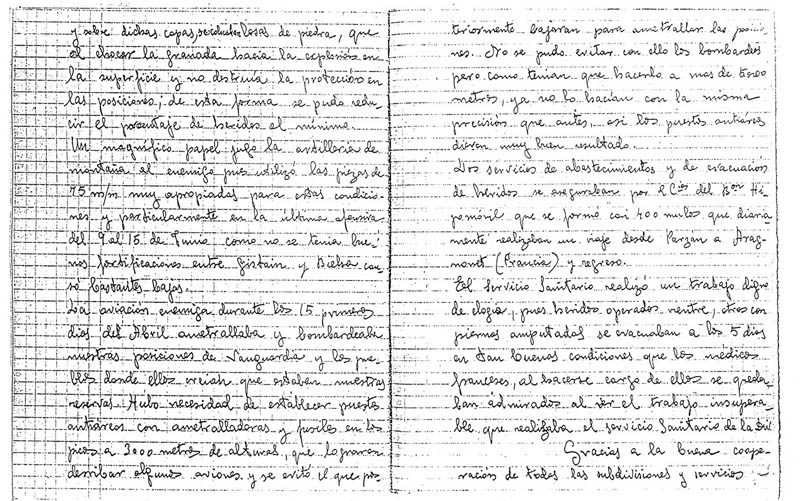 y sobre dichas capas, se colocaban losas de piedra, que
al chocar la granada hacia la explosión en
la superficie y no destruia la protección en
las posiciones; de esta forma se pudo redu-
cir el porcentaje de heridos al mínimo.
Un magnífico papel jugó la artilleria de
montaña al enemigo pues utilizó las piezas de
75 m/m muy apropiadas para estas condicio-
nes y particularmente en la última ofensiva
del 9 al 15 de Junio como no se tenia bue-
nas fortificaciones entre Gistain y Bielsa cau-
só bastantes bajas.
La aviación enemiga durante los 15 primeros
dias del Abril ametrallaba y bombardeaba
nuestras posiciones de Vanguardia y los pue-
blos donde ellos creian que estaban nuestras
reservas. Hubo necesidad de establecer puestos
antiáreos con ametralladoras y fusiles en los
picos a 3000 metros de alturas, que lograron
derribar algunos aviones y se evitó el que pos-
teriormente bajaran para ametrallar las posicio-
nes. No se pudo evitar con ello los bombardeos
pero como tenian que hacerlo a mas de 5000
metros, ya no lo hacian con la misma
precisión que antes, asi los puestos antiáreos
dieron muy buen resultado.
Los servicios de abastecimientos y de evacuación
de heridos se aseguraban por 2 Cias del Bon Hi-
pomóvil que se formó con 400 mulos que diaria
mente realizaban un viaje desde Parzan a Arag-
nouet (Francia) y regreso.
El servicio Sanitario realizó un trabajo digno
de elogio, pues heridos operados vientre, otros con
piernas amputadas se evacuaban a los 5 dias
en tan buenas condiciones que los médicos
franceses, al hacerse cargo de ellos se queda-
ban admirados al ver el trabajo insupera-
ble que realizaba el servicio Sanitario de la Div
Gracias a la buena coope-
ración de todas las subdivisiones y servicios